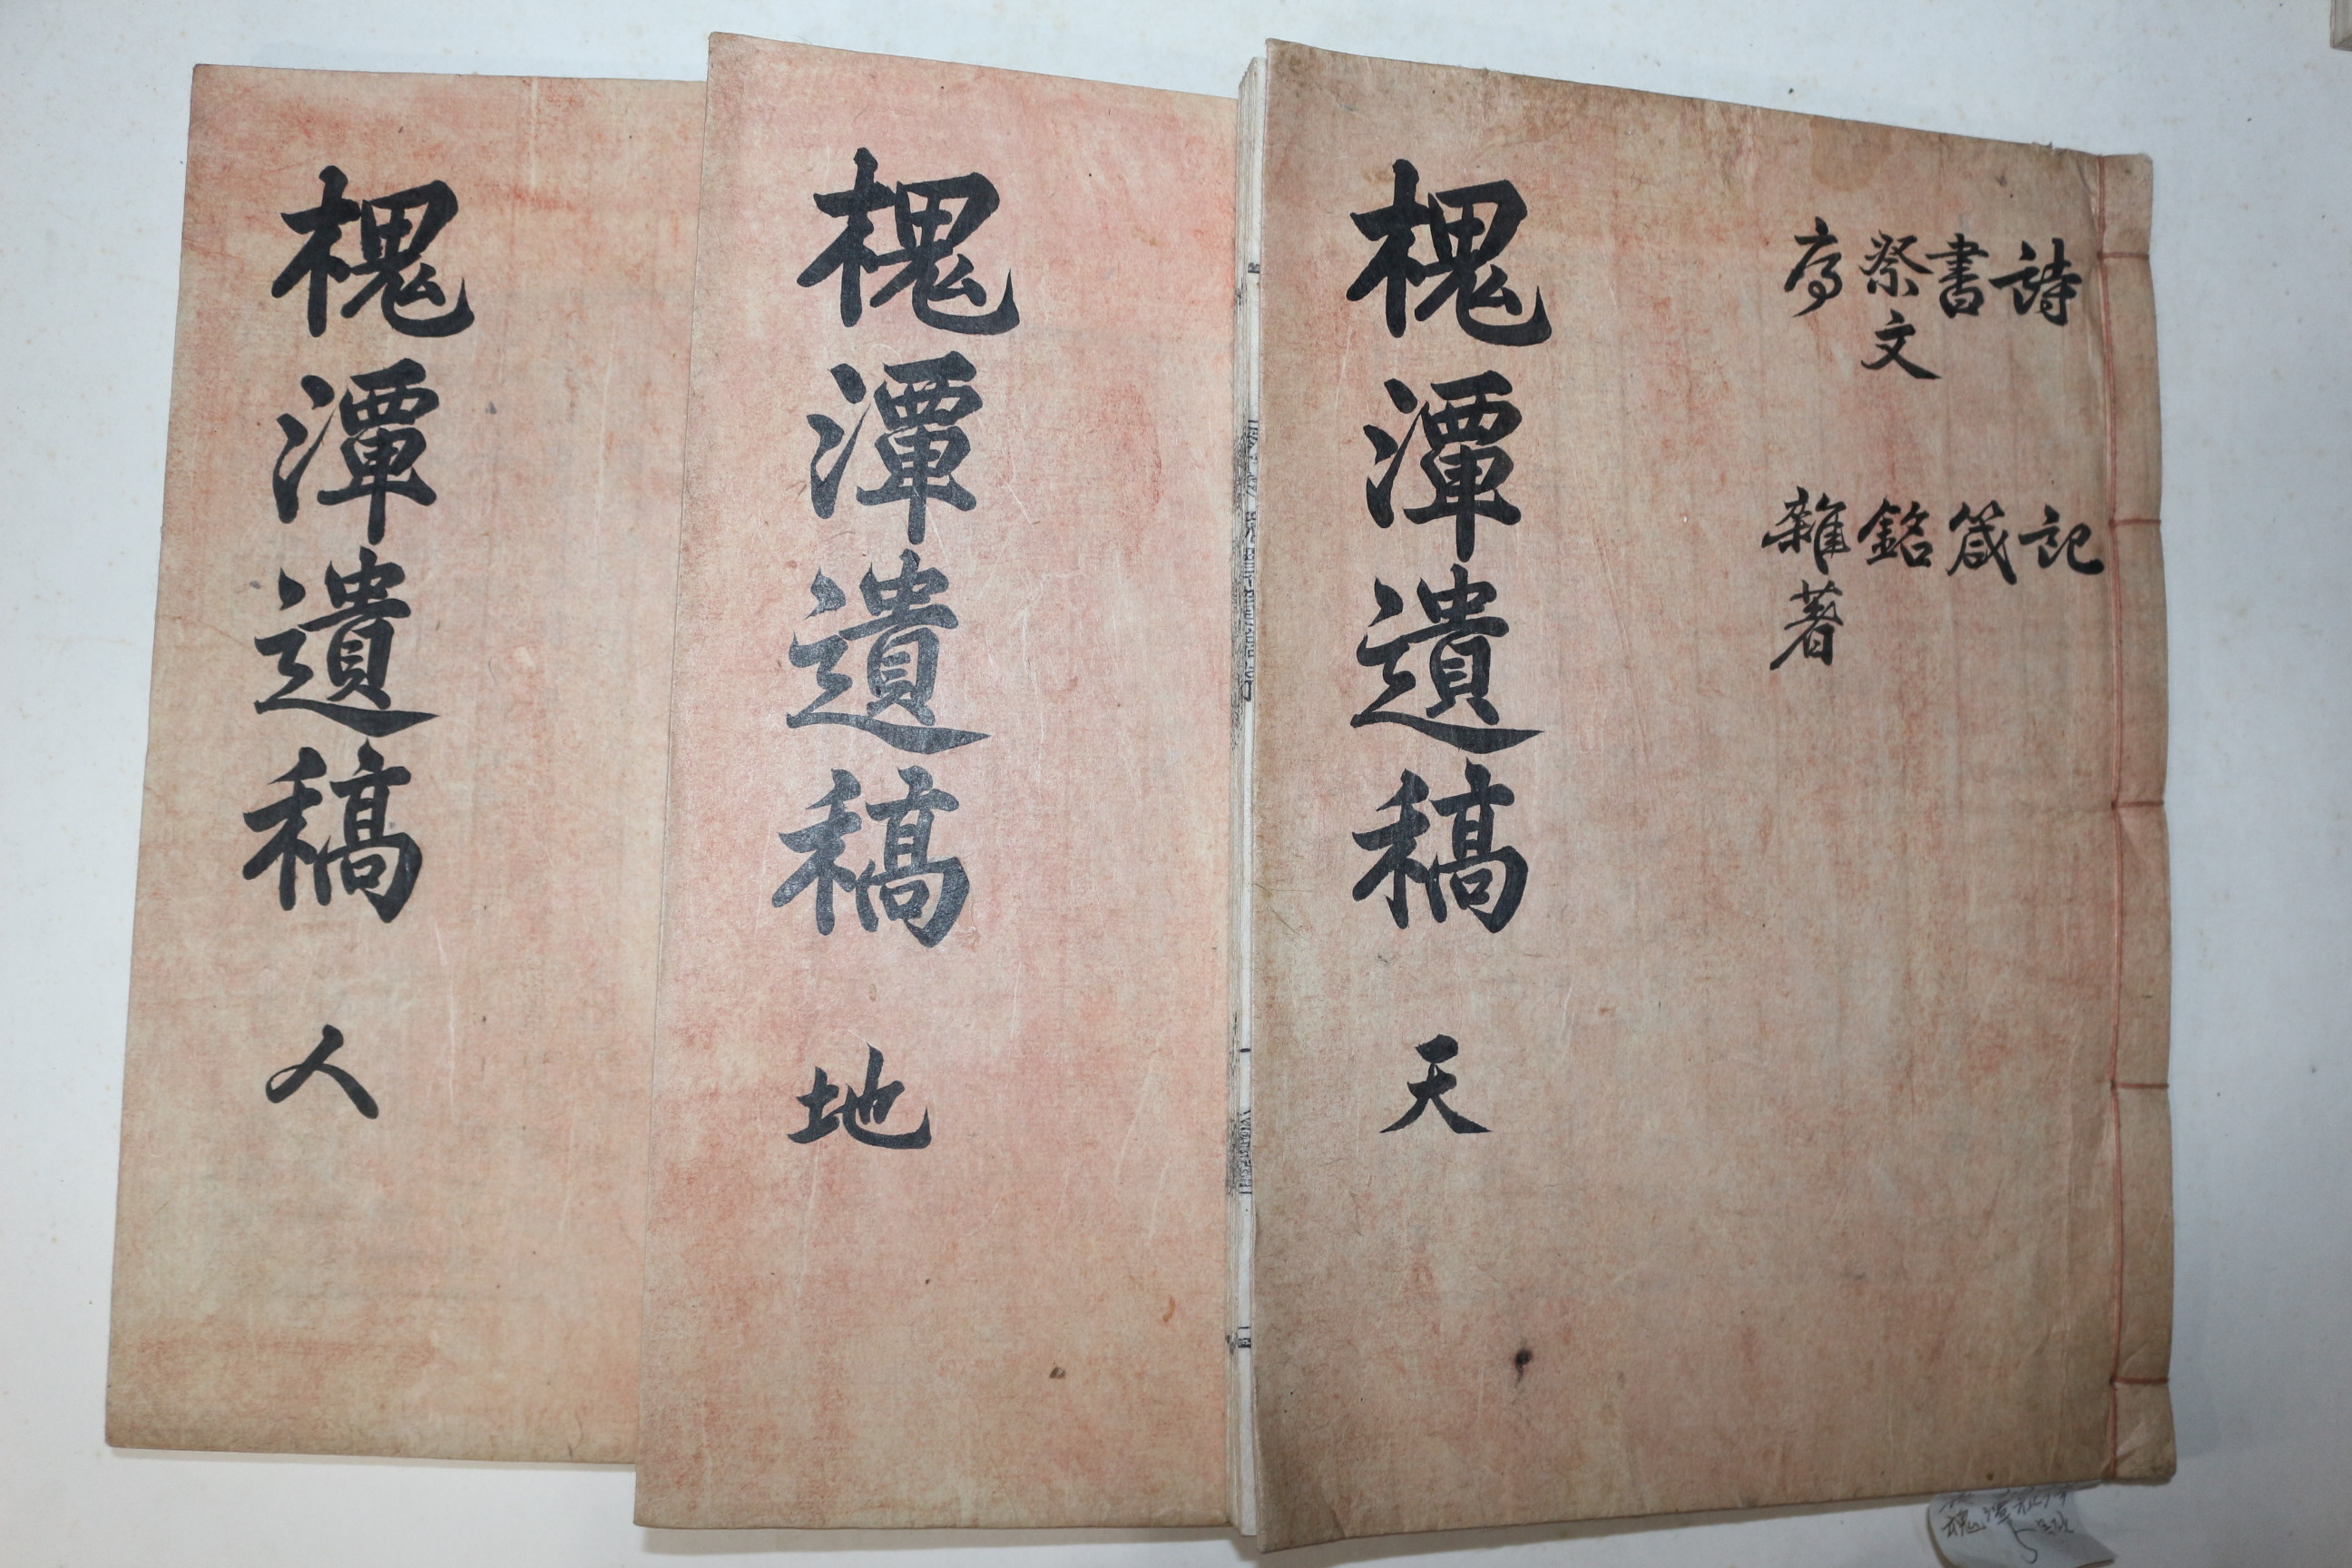 詩
書
祭文
序
記
箴
銘
雜著
槐潭遺稿 天
槐潭遺稿 地
槐潭遺稿 人